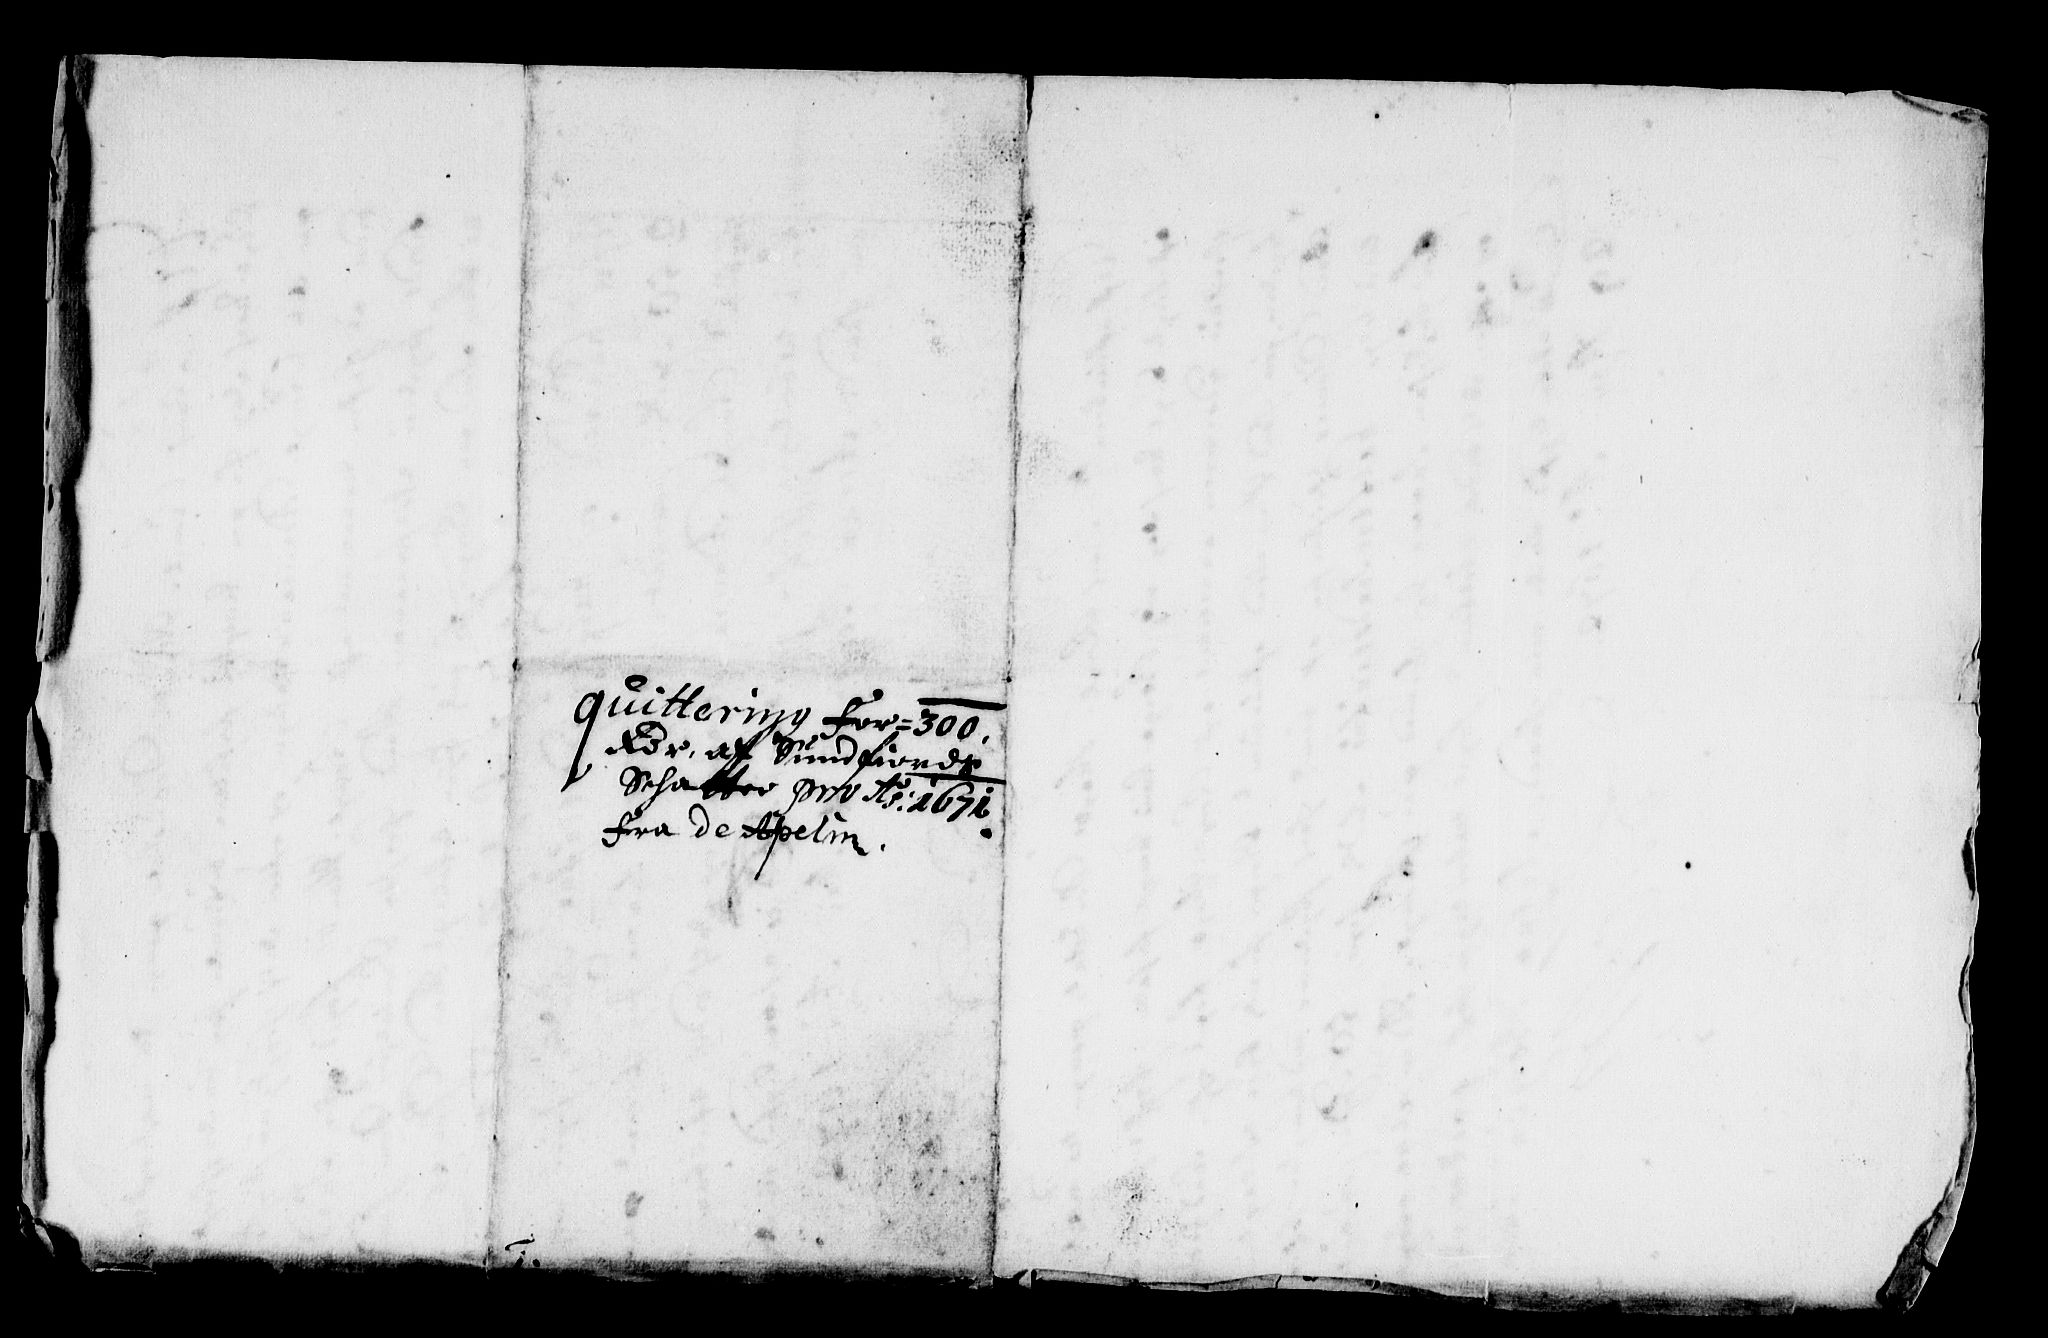 quittering for = 300.
Rdr. aff Sundfiords
Schatter pro Ao: 1671.
fra de Apelin.